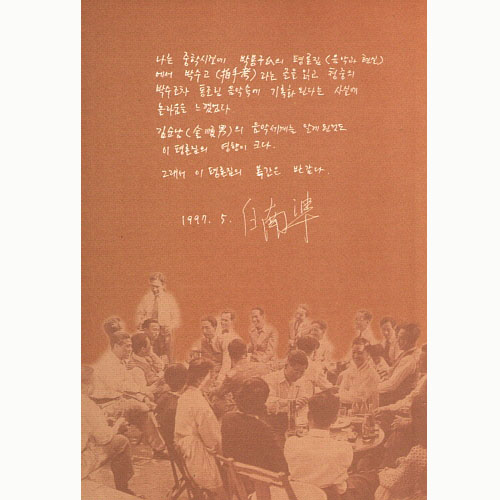 나는 중학시절에 박용구氏의 평론집 (음악과 현실)
에서 박수고 (拍手考) 라는 글을 읽고 청중의
박수조차 훌륭한 음악속에 기록화 된다는 사실에
놀라움을 느꼈었다.
김순남 (金順男) 의 음악세계를 알게 된것도
이 평론집의 영향이 크다.
그래서 이 평론집의 복간은 반갑다.
1997. 5. 白南準